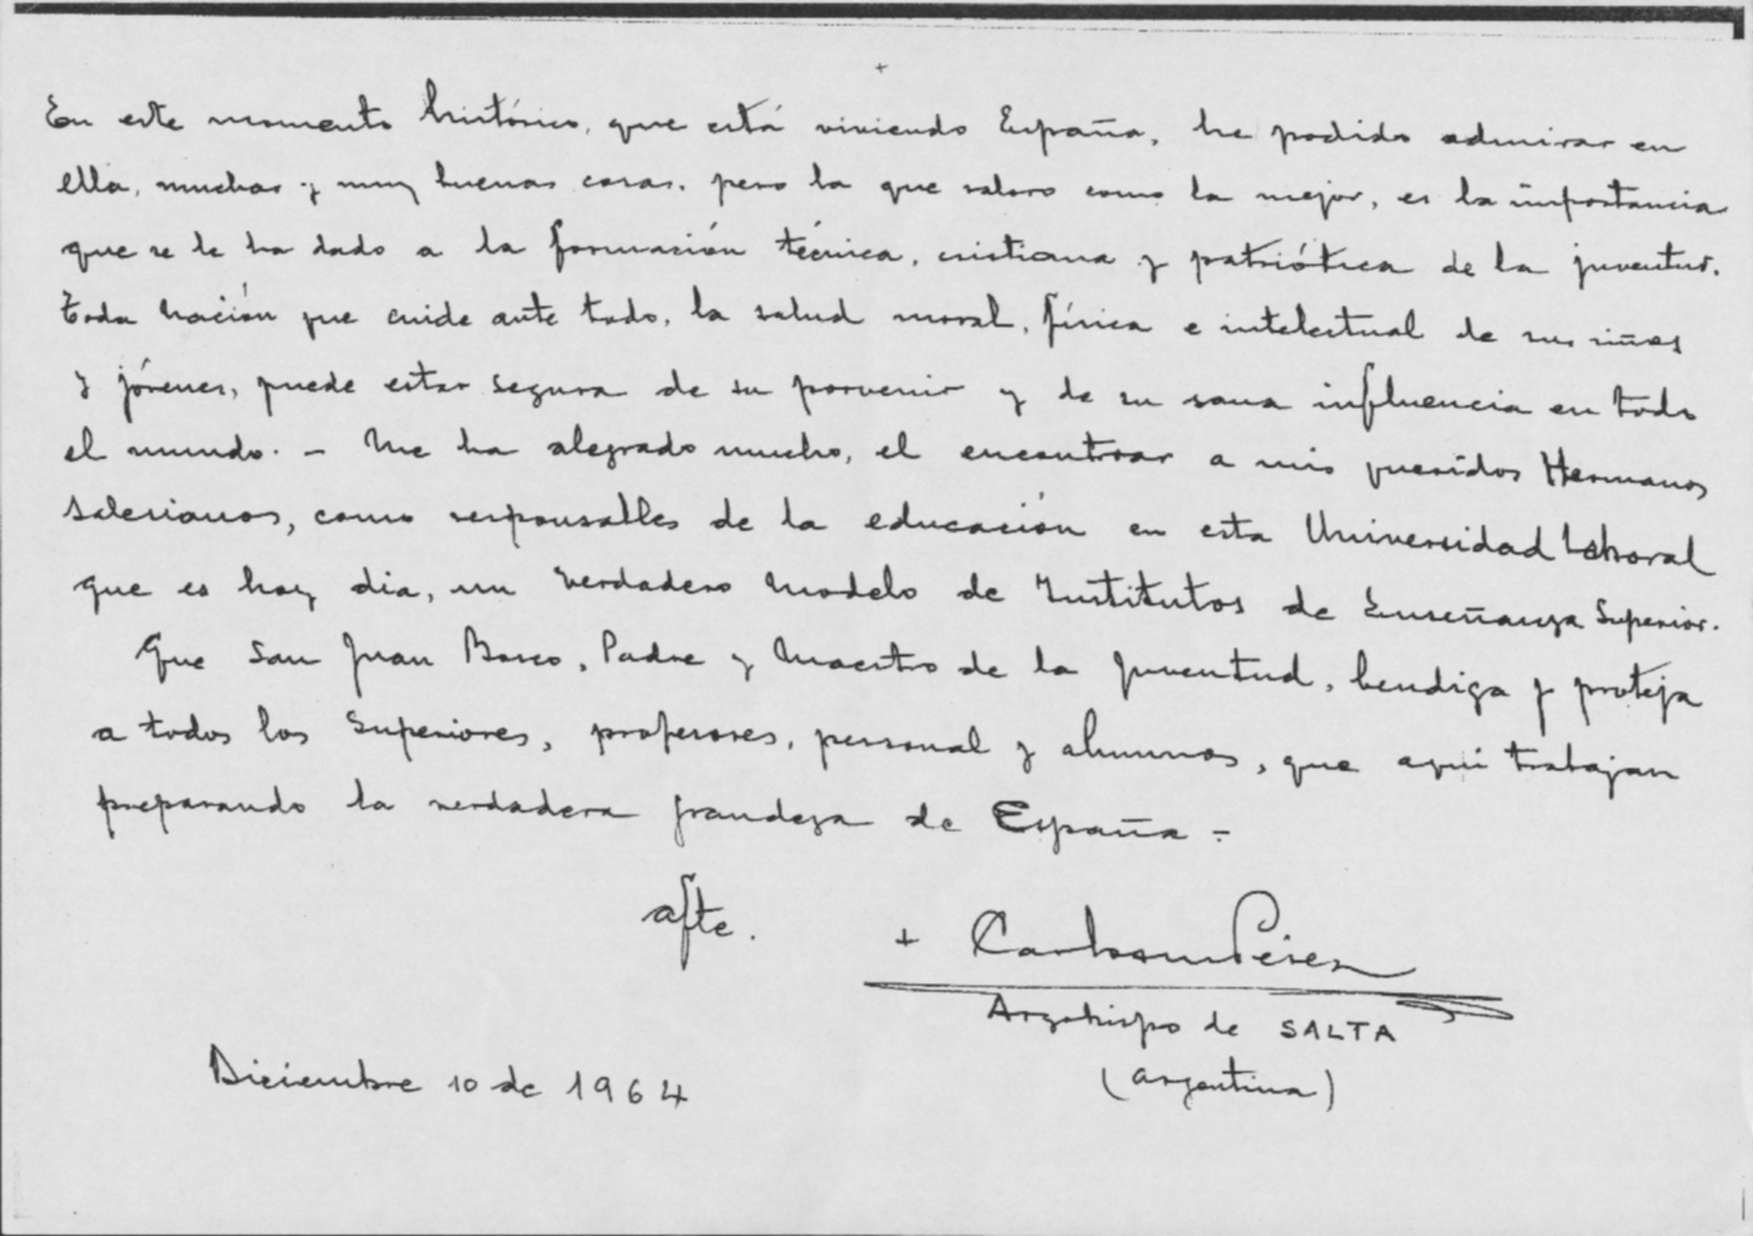 +
En este momento histórico, que está viviendo España, he podido admirar en
ella, muchas y muy buenas cosas. pero la que valoro como la mejor, es la importancia
que se le ha dado a la formación técnica, cristiana y patriótica de la juventud.
Toda nación que cuide ante todo, la salud moral, física e intelectual de sus niños
y jóvenes, puede estar segura de su porvenir y de su sana influencia en todo
el mundo. - Me ha alegrado mucho, el encontrar a mis queridos Hermanos
Salesianos, como responsables de la educación en esta Universidad Laboral
que es hoy dia, un verdadero modelo de Institutos de Enseñanza Superior.
Que San Juan Bosco, Padre y Maestro de la Juventud, bendiga y proteja
a todos los Superiores, profesores, personal y alumnos, que aqui trabajan
preparando la verdadera grandeza de España -
afte.
+ Carlos Pérez
Arzobispo de SALTA
(Argentina)
Diciembre 10 de 1964